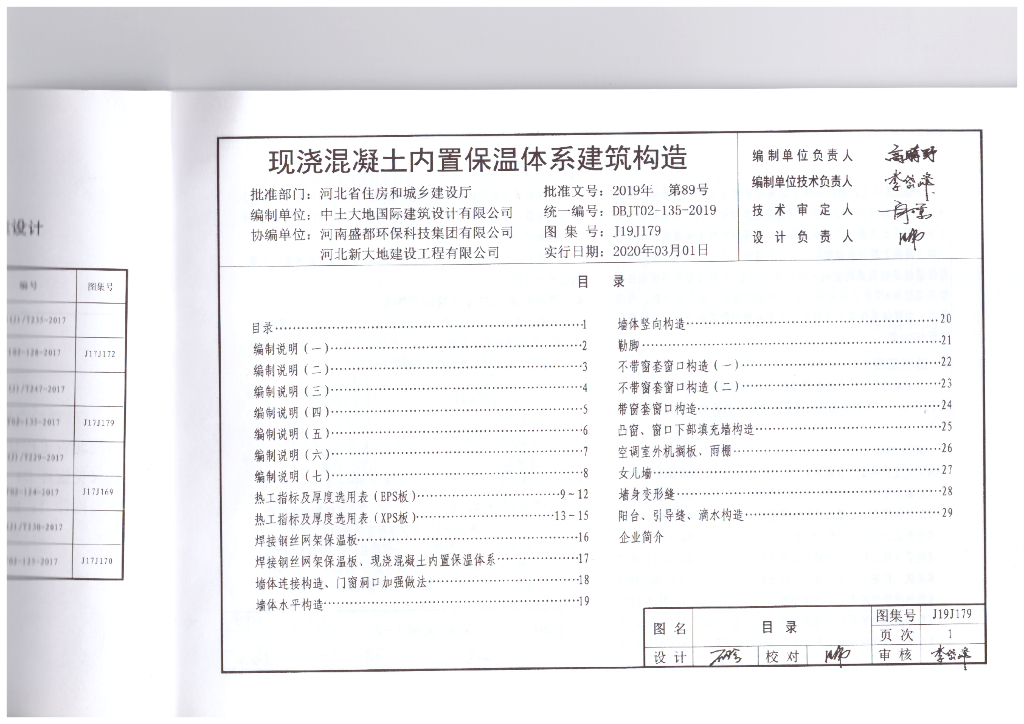 设计
编号 图集号
(J)/T235-2017
J17J172
(J)/T247-2017
J17J179
(J)/T229-2017
J17J169
(J)/T230-2017
J17J170
现浇混凝土内置保温体系建筑构造
批准部门：河北省住房和城乡建设厅 批准文号：2019年 第89号
编制单位：中土大地国际建筑设计有限公司 统一编号：DBJT02-135-2019
协编单位：河南盛都环保科技集团有限公司 图集号：J19J179
河北新大地建设工程有限公司 实行日期：2020年03月01日
编制单位负责人
编制单位技术负责人 李岱峰
技术审定人
设计负责人
目 录
目录1
编制说明（一）2
编制说明（二）3
编制说明（三）4
编制说明（四）5
编制说明（五）6
编制说明（六）7
编制说明（七）8
热工指标及厚度选用表（EPS板）9~12
热工指标及厚度选用表（XPS板）13~15
焊接钢丝网架保温板16
焊接钢丝网架保温板、现浇混凝土内置保温体系17
墙体连接构造、门窗洞口加强做法18
墙体水平构造19
墙体竖向构造20
勒脚21
不带窗套窗口构造（一）22
不带窗套窗口构造（二）23
带窗套窗口构造24
凸窗、窗口下部填充墙构造25
空调室外机搁板、雨棚26
女儿墙27
墙身变形缝28
阳台、引导缝、滴水构造29
企业简介
图名 目录 图集号 J19J179
页次 1
设计 校对 审核 李岱峰